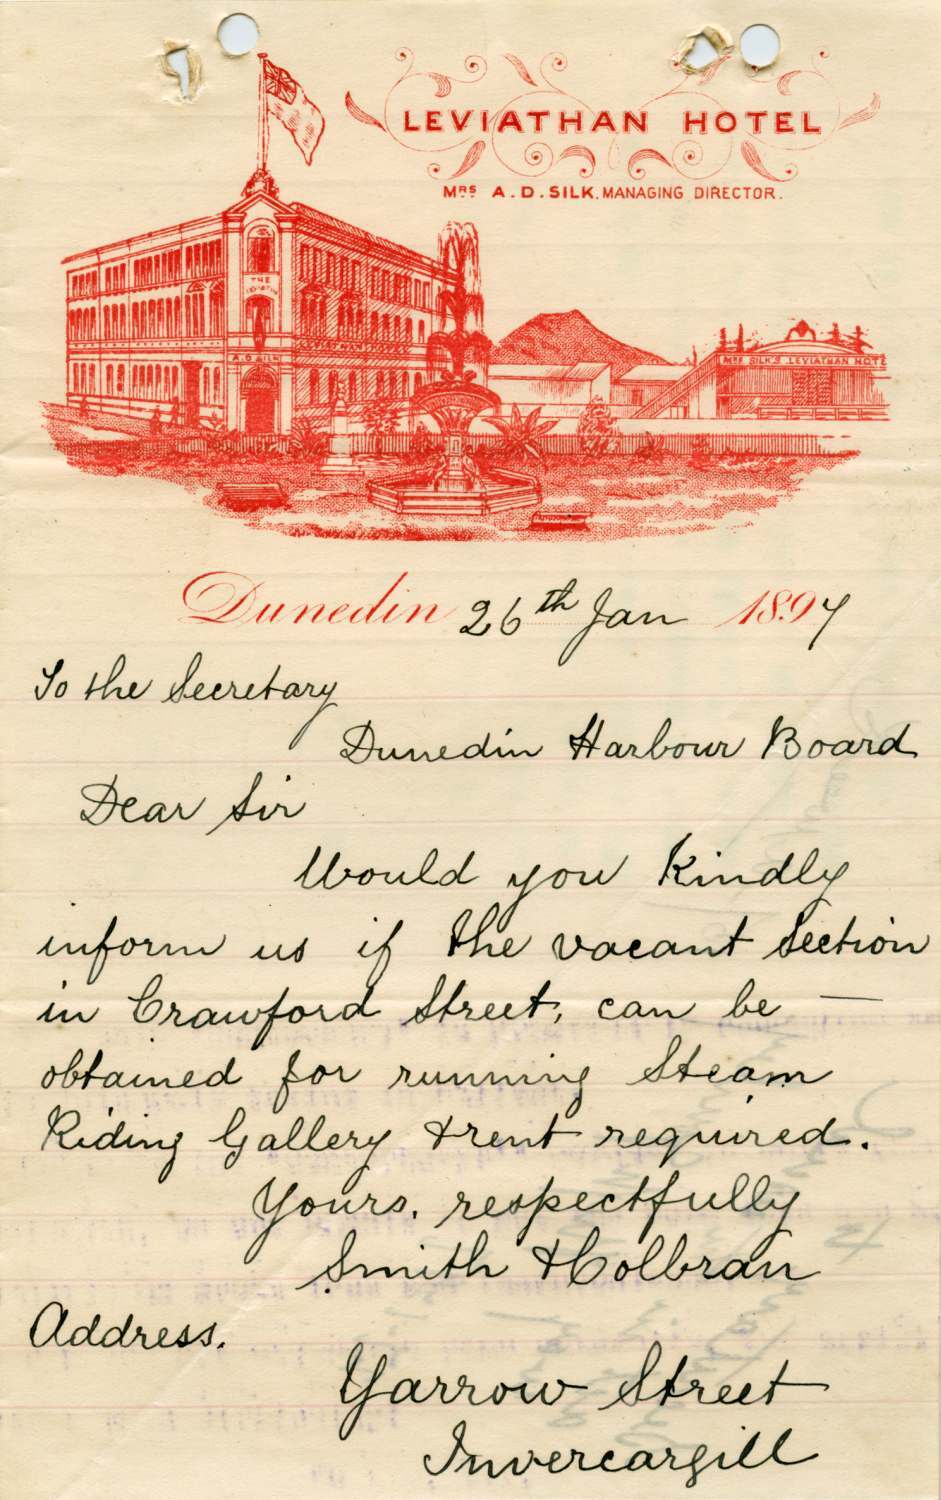 LEVIATHAN HOTEL
MRS A. D. SILK, MANAGING DIRECTOR.
THE
LEVIATHAN
A. D. SILK
MRS SILK'S LEVIATHAN HOTE
Dunedin 26th Jan 1897
To the Secretary
Dunedin Harbour Board
Dear Sir
Would you Kindly
inform us if the vacant Section
in Crawford Street, can be —
obtained for running Steam
Riding Gallery & rent required.
Yours, respectfully
Smith & Holbran
Address.
Yarrow Street
Invercargill